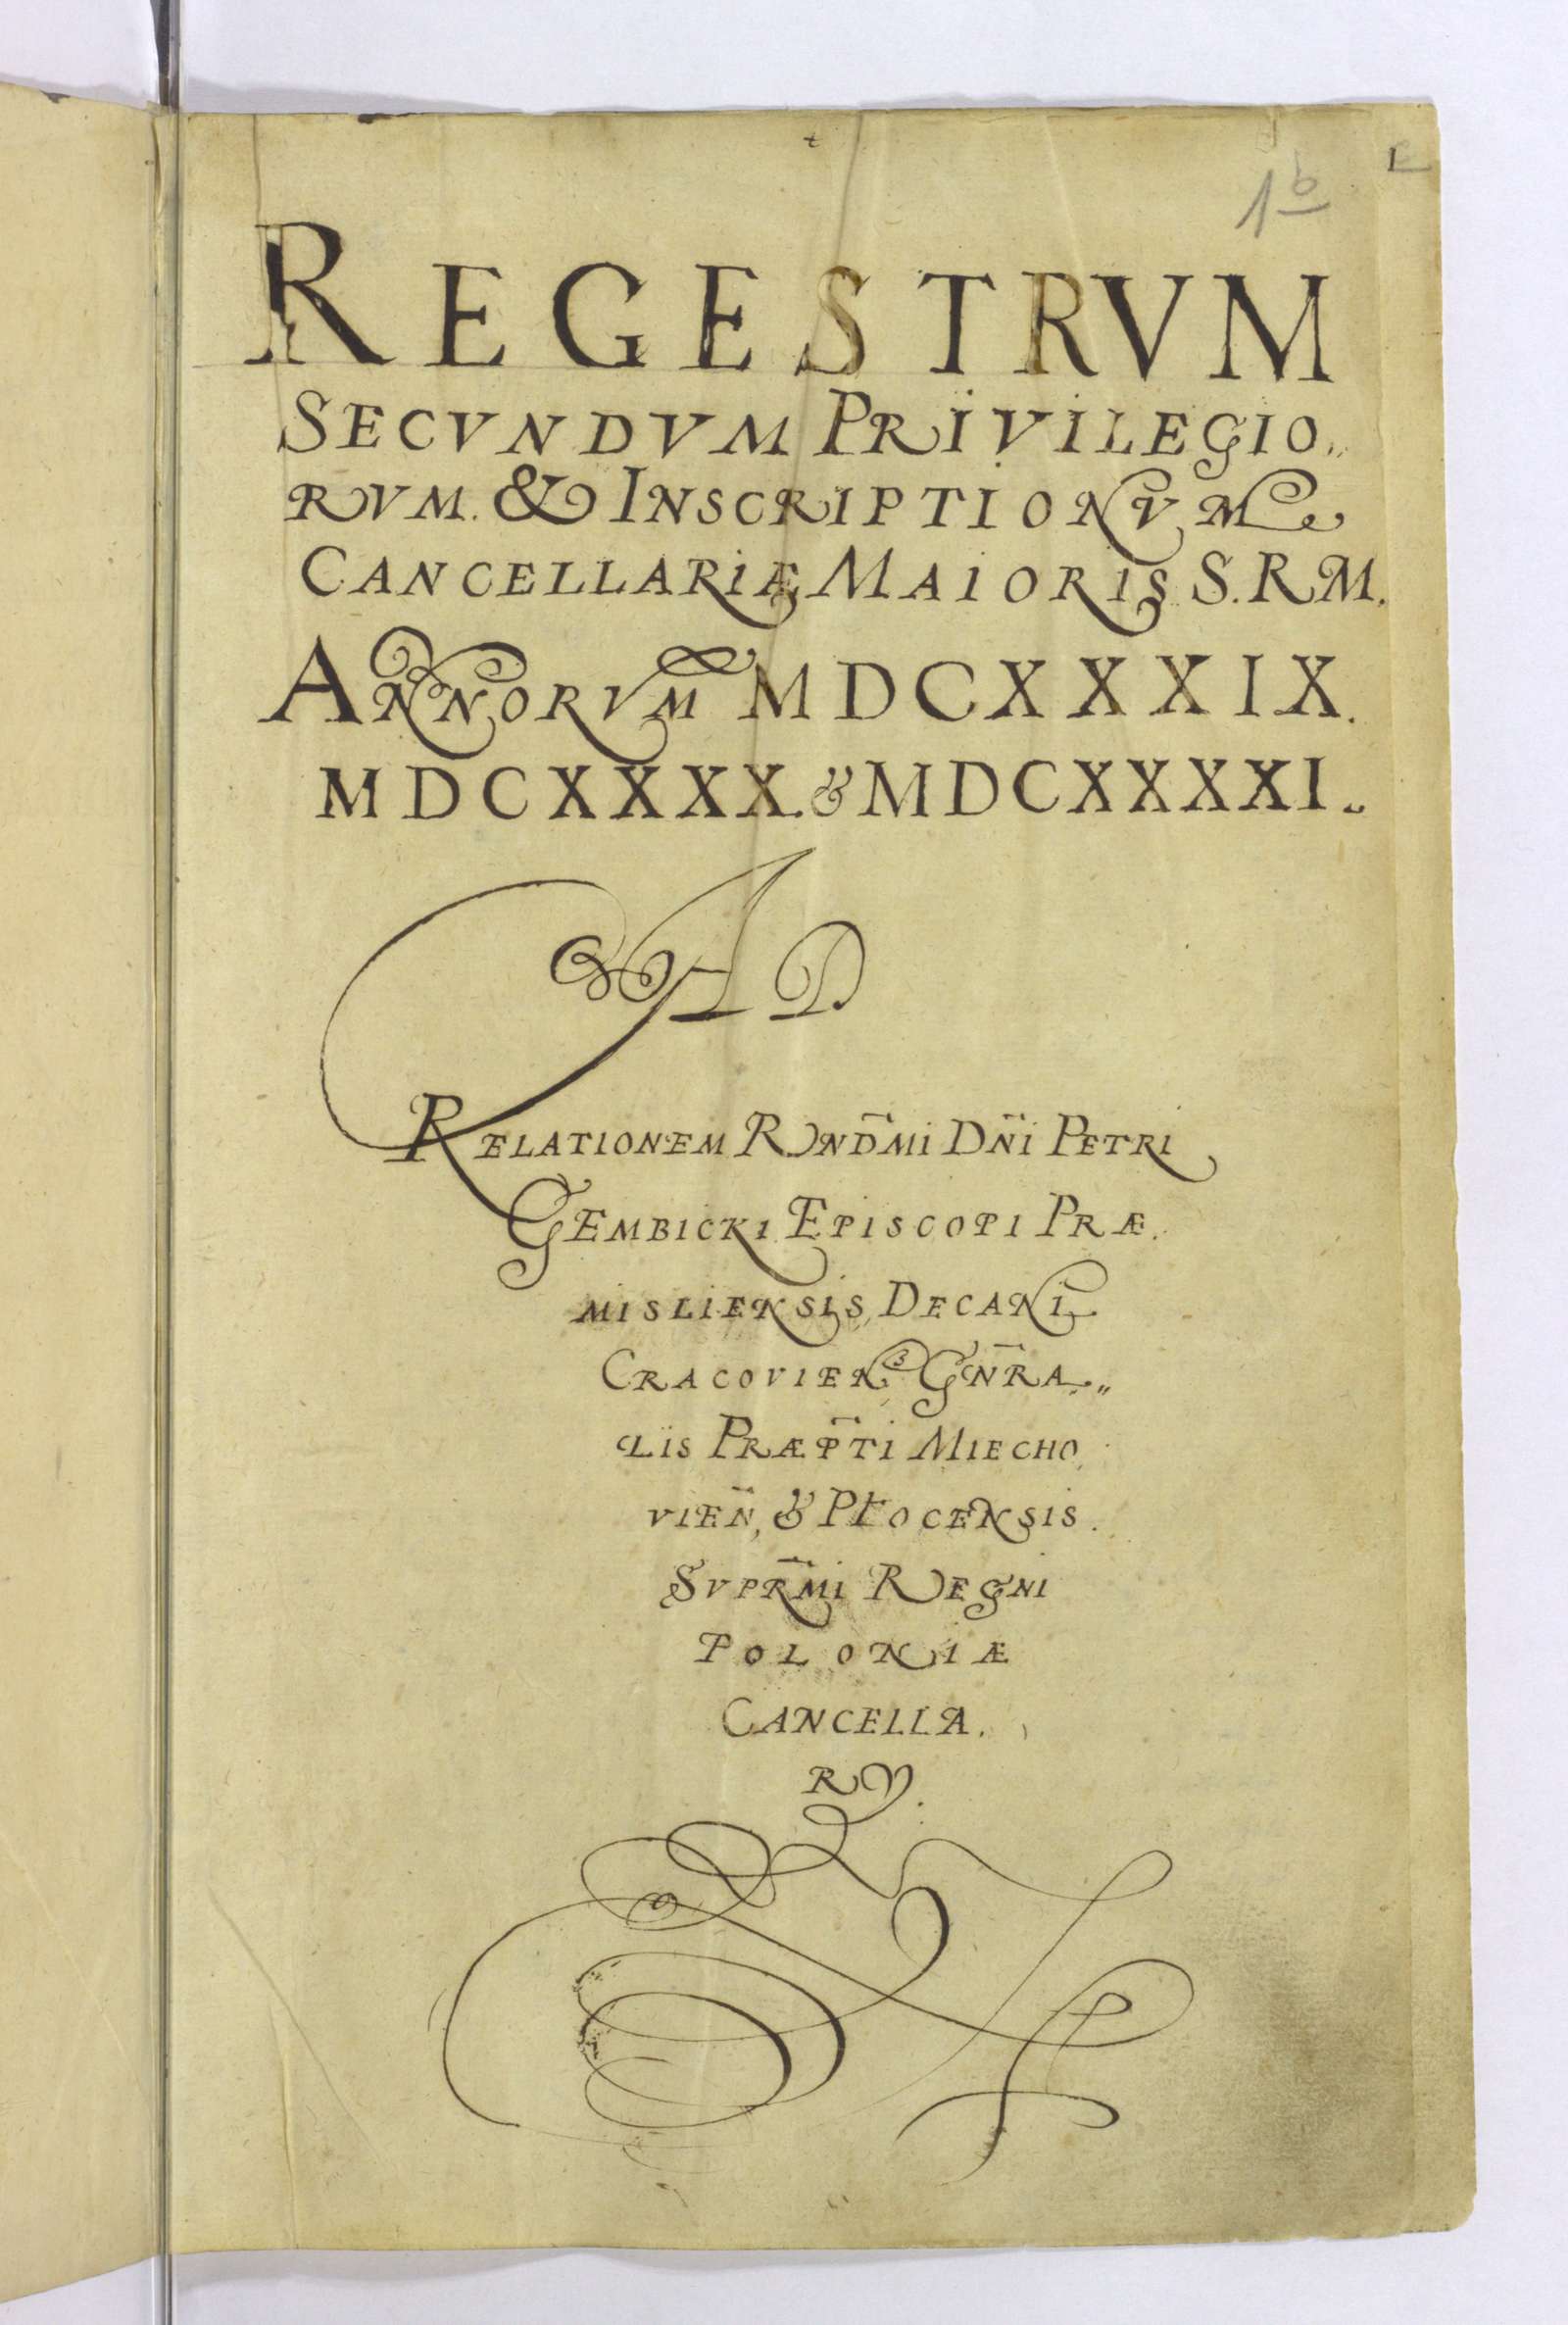 1b
REGESTRVM
SECVNDVM PRIVILEGIO„
RVM. & INSCRIPTIONVM
CANCELLARIÆ MAIORIS S.RM.
ANNORVM MDCXXXIX.
MDCXXXX. & MDCXXXXI.
AD
RELATIONEM RND̃MI DÑI PETRI
GEMBICKI EPISCOPI PRÆ.
MISLIENSIS, DECANI
CRACOVIEN GÑRA„
LIS PRÆP̃TI MIECHO
VIEÑ, & PŁOCENSIS.
SVPRM̃I REGNI
POLONIÆ
CANCELLA.
RY.